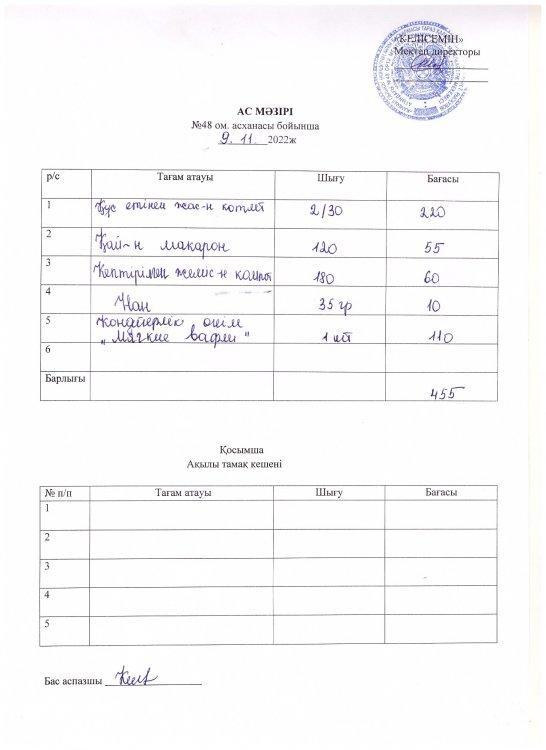 «КЕЛІСЕМІН»
Мектеп директоры
АС МӘЗІРІ
№48 ом. асханасы бойынша
9. 11. 2022ж
р/с Тағам атауы Шығу Бағасы
1 Құс етінен жас-н котлет 2/30 220
2 Қай-н макарон 120 55
3 Кептірілген жеміс-н компот 180 60
4 Нан 35 гр 10
5 Кондитерлік өнім
„Мягкие вафли" 1 шт 110
6
Барлығы 455
Қосымша
Ақылы тамақ кешені
№ п/п Тағам атауы Шығу Бағасы
1
2
3
4
5
Бас аспазшы